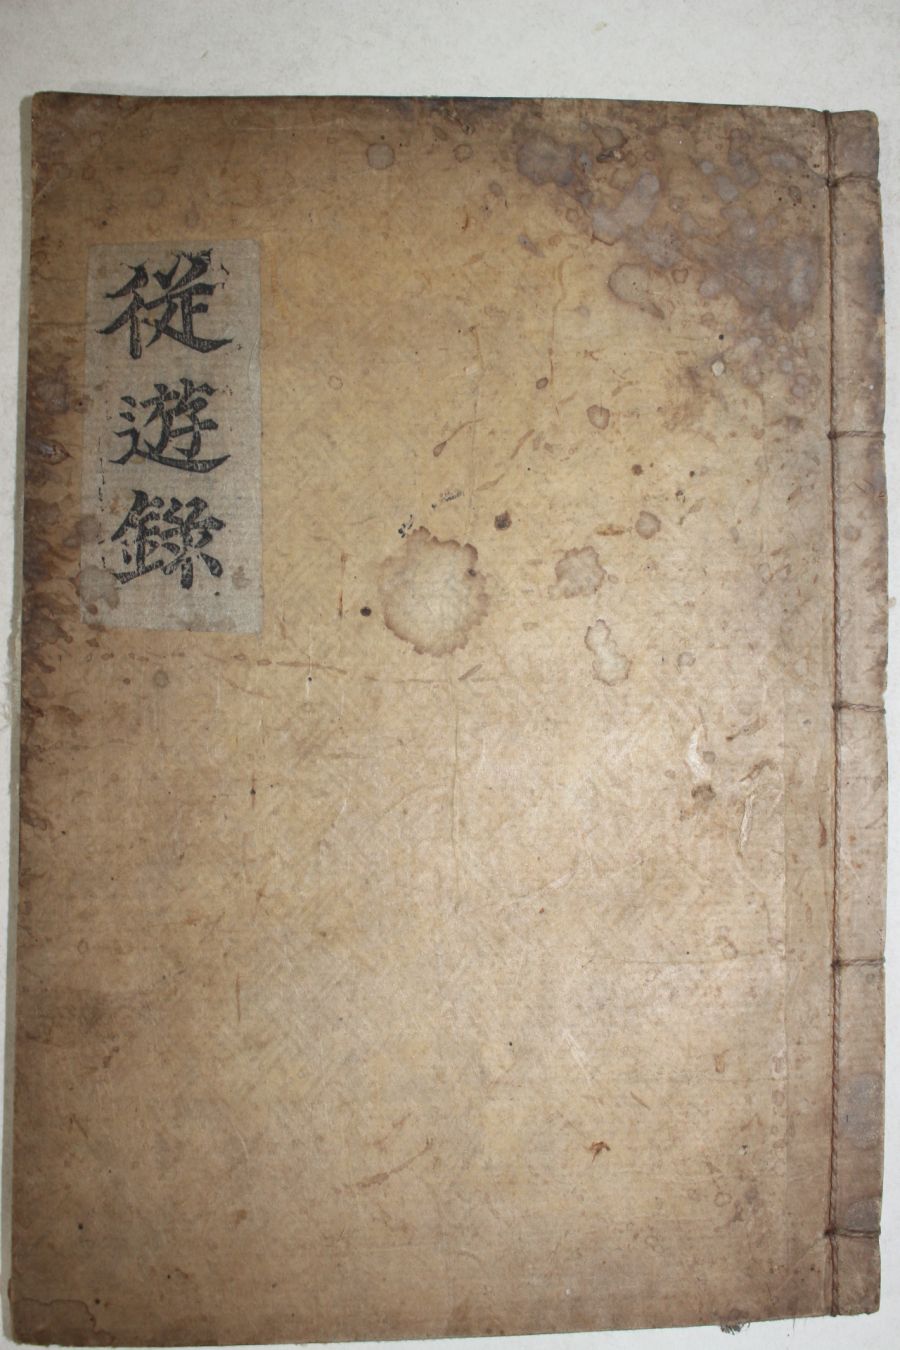 從遊錄